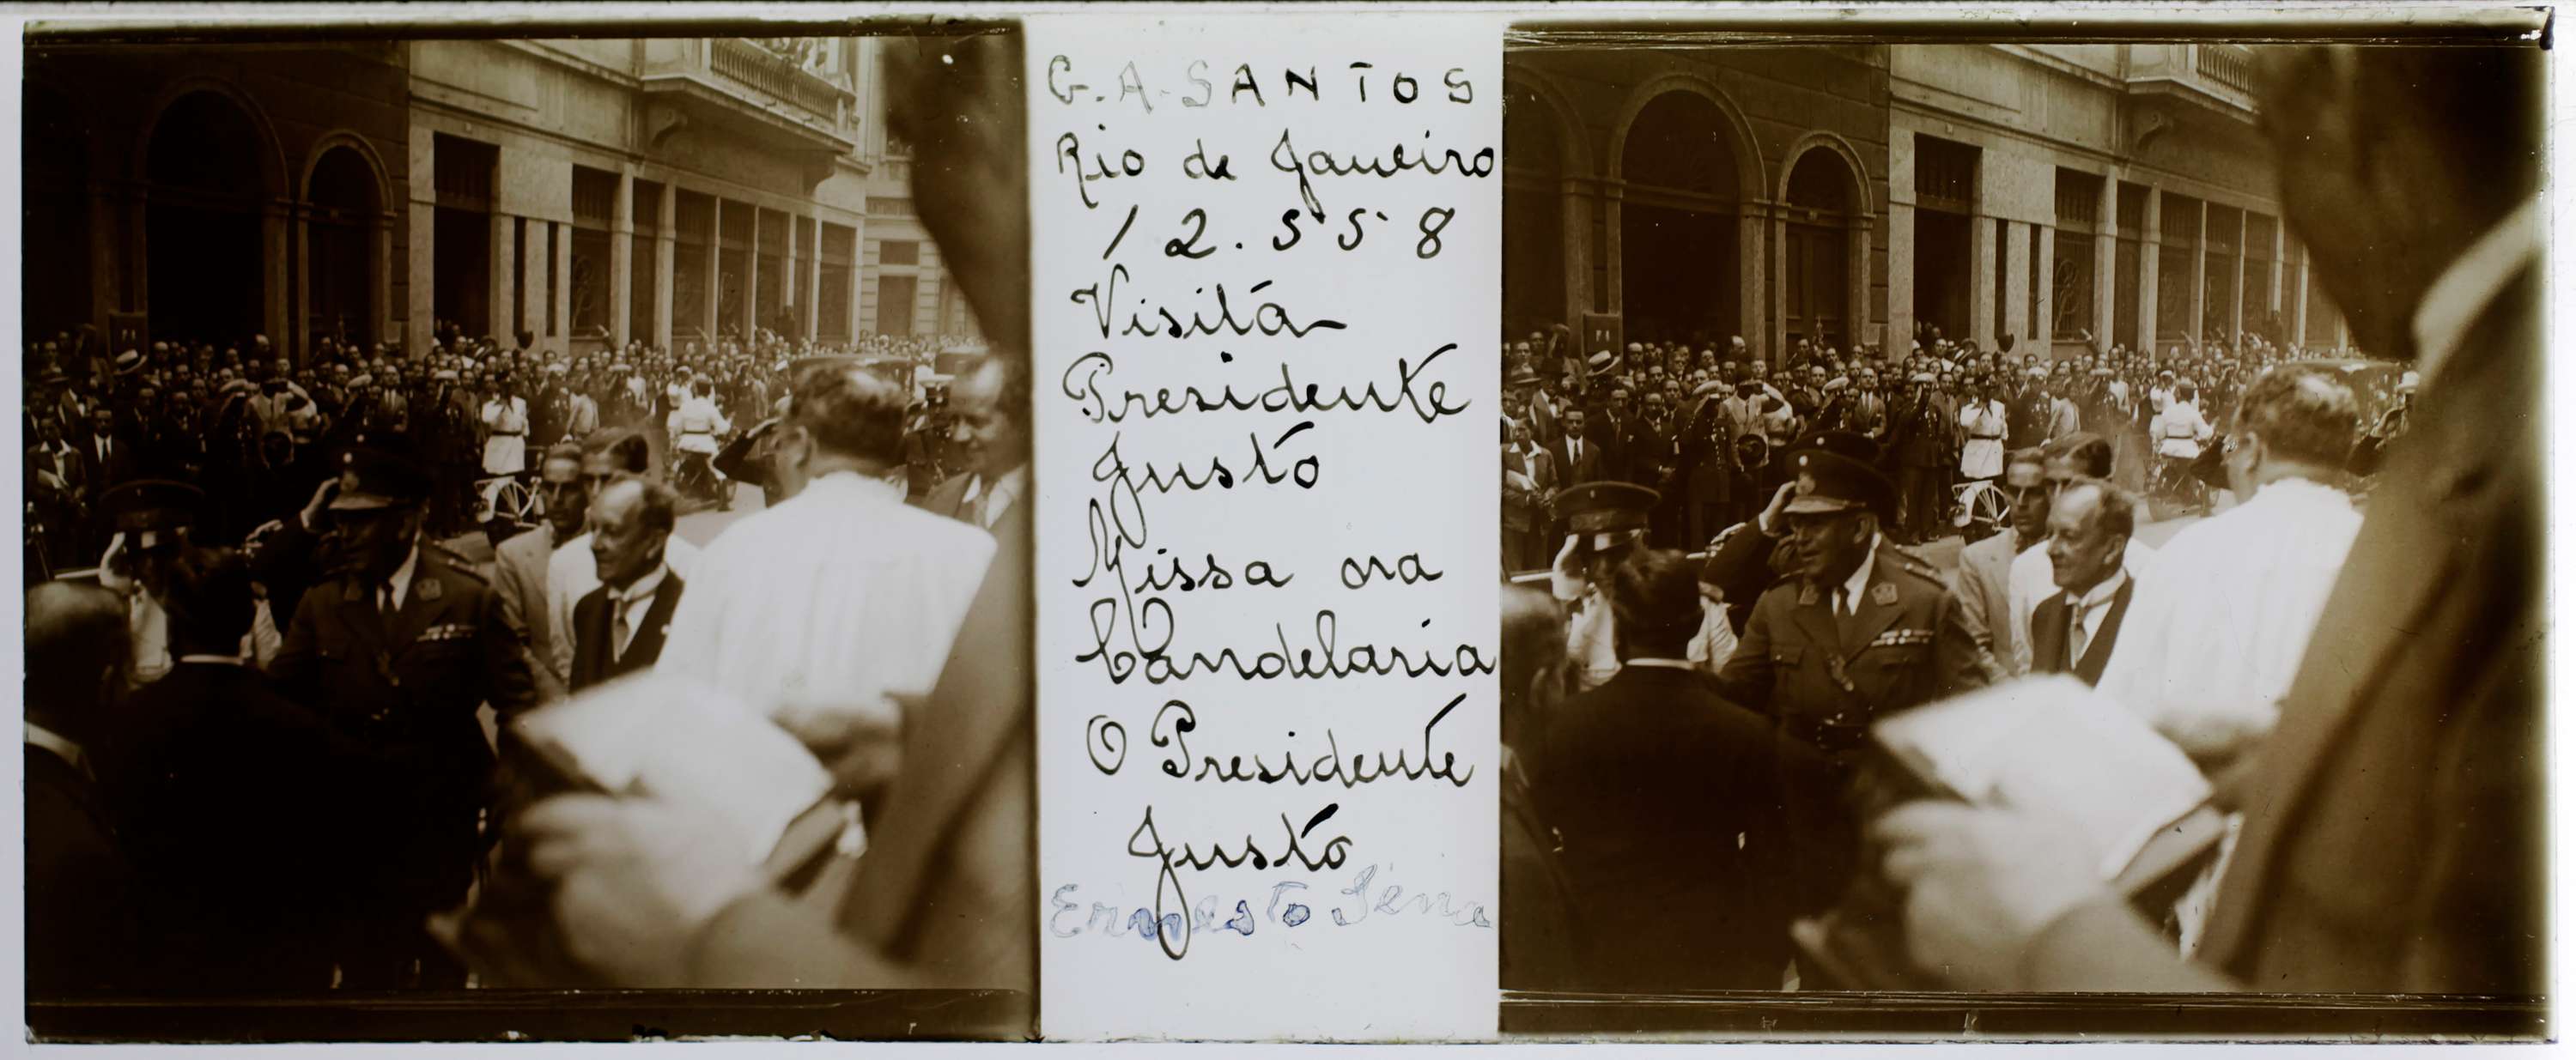 G. A. SANTOS
Rio de Janeiro
12.558
Visita
Presidente
Justo
Missa ora
Candelaria
O Presidente
Justo
Ernesto Sena